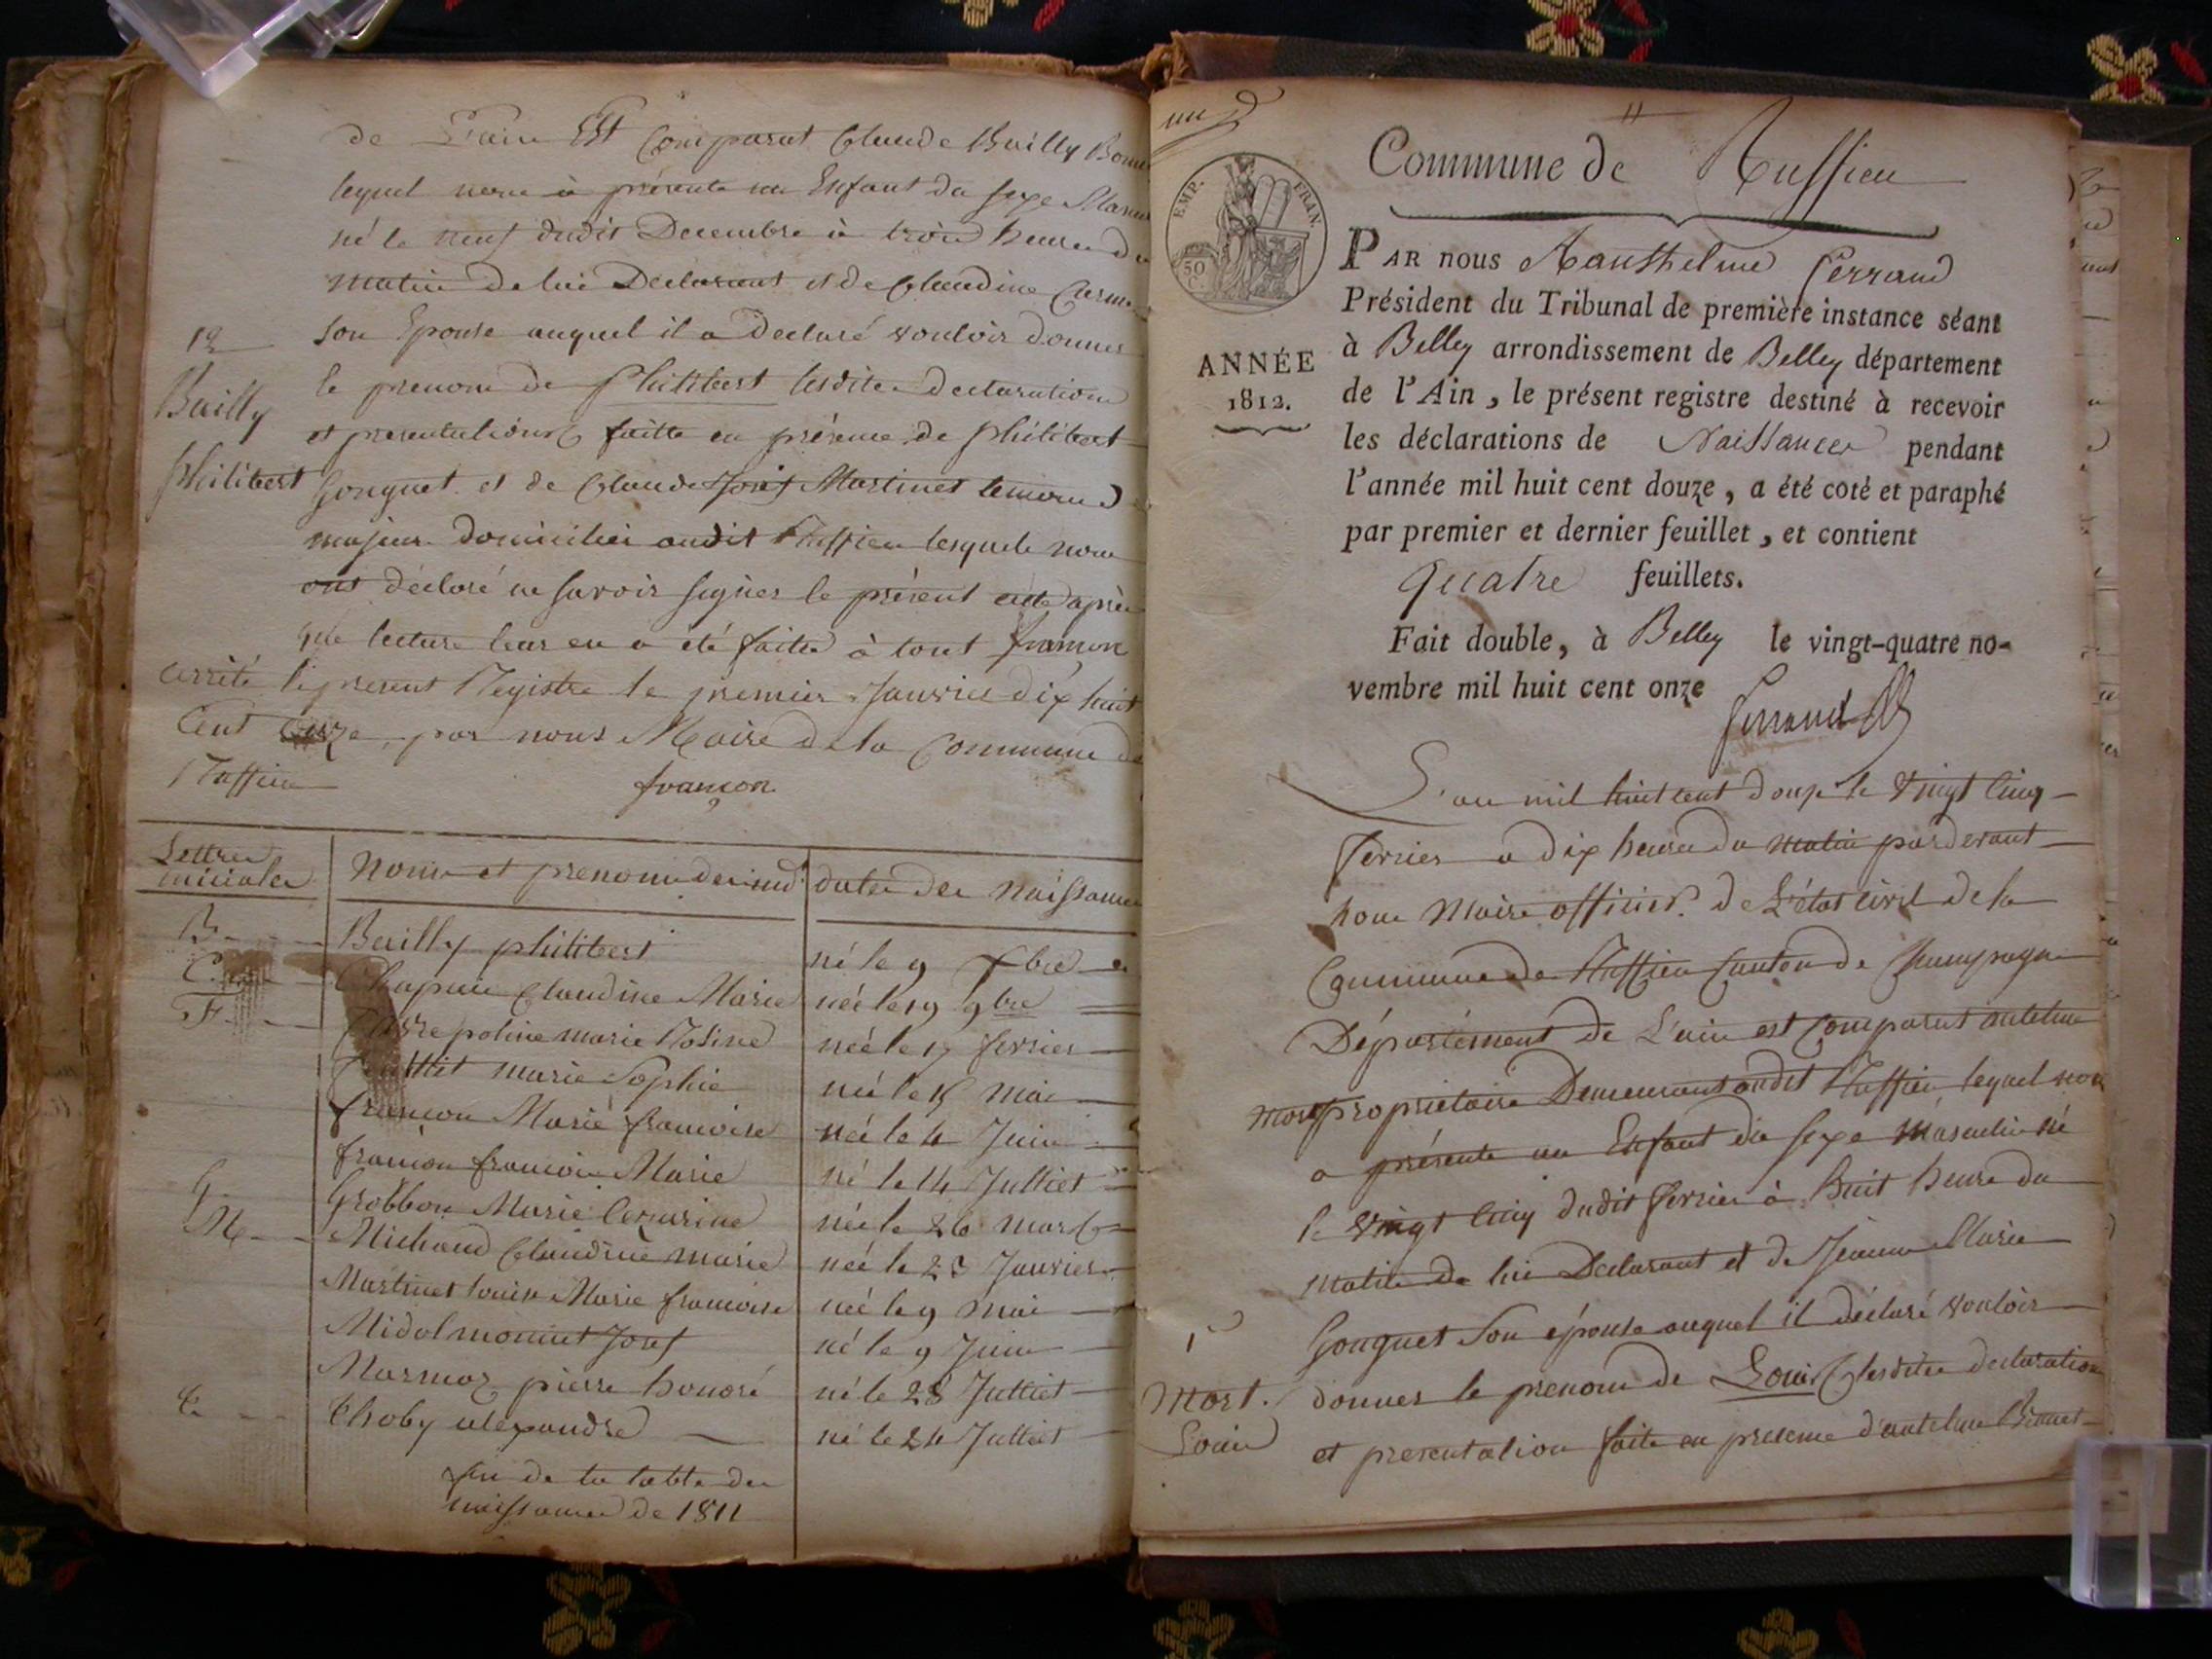 de L'ain Est Comparut Claude Bailly
lequel nous à présenté un Enfant du sexe
né le neuf dudit Decembre à trois heures
matin de lui Déclarant et de Claudine
son Epouse auquel il a declaré vouloir donner
12
le prenom de philibert lesdites declarations
Bailly
et presentations faitte en présence de philibert
philibert
Gonguet et de Claude Josef Martinet temoins
majeurs domiciliés audit Ruffieu lesquels nous
ont déclaré ne savoir signer le présent acte après
que lecture leur en a été faitte à tout françon
arrêté le present Registre le premier Janvier dix huit
Cent par nous Maire de la Commune de
Ruffieu
françon
Lettres initiales
Noms et prenoms des ind.
dates des naissances
B
Bailly philibert
né le 9 Xbre
C
Chapuis Claudine Marie
née le 19 9bre
F
poline marie Rosine
née le 17 fevrier
marie Sophie
née le 15 mai
françon Marie françoise
née le 4 Juin
françon françois Marie
né le 14 Julliet
G
Grobbon Marie
née le 26 mars
M
Michaud Claudine marie
née le 23 Janvier
Martinet louise Marie françoise
née le 9 mai
Midol monnet Josef
né le 9 Juin
Marmoz pierre honoré
né le 28 Julliet
t
thoby alexandre
né le 24 Julliet
fin de la table des
naissances de 1811
un
Commune de Ruffieu
EMP. FRAN.
50 C.
ANNÉE
1812.
PAR nous Aanthelme Ferrand
Président du Tribunal de première instance séant
à Belley arrondissement de Belley département
de l'Ain, le présent registre destiné à recevoir
les déclarations de Naissances pendant
l'année mil huit cent douze, a été coté et paraphé
par premier et dernier feuillet, et contient
Quatre feuillets.
Fait double, à Belley le vingt-quatre no-
vembre mil huit cent onze
Ferrand
L'an mil huit cent douze le vingt cinq
fevrier a dix heures du matin pardevant
nous Maire officier de L'état civil de la
Commune de Ruffieu Canton de Champagne
Département de L'ain est Comparut antelme
mort propriétaire Demeurant audit Ruffieu lequel nous
a présenté un Enfant du sexe masculin né
le vingt cinq dudit fevrier à huit heures du
matin de lui Déclarant et de Jeanne Marie
1
Gonguet son épouse auquel il déclaré vouloir
Mort.
donner le prenom de Louis lesdites declarations
Louis
et presentation faite en presence d'antelme